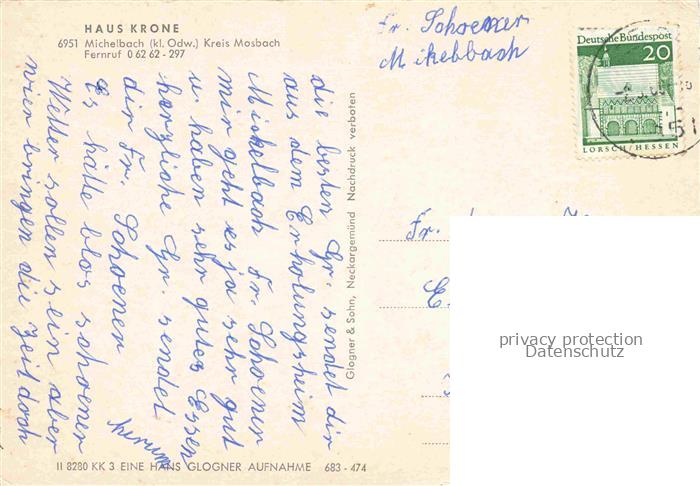 HAUS KRONE
6951 Michelbach (kl. Odw.) Kreis Mosbach
Fernruf 0 62 62 - 297
Fr. Schoener
Mikelbbach
Deutsche Bundespost
20
LORSCH/HESSEN
die besten Gr. sendet dir
aus dem Erholungsheim
Mickelbach Fr. Schoener
mir geht es ja sehr gut
u. haben sehr gutes Essen
herzliche Gr. sendet
dir Fr. Schoener
Es hätte blos schoener
Wetter sollen sein aber
wier bringen die Zeit doch
herum
Glogner & Sohn, Neckargemünd Nachdruck verboten
Fr.
privacy protection
Datenschutz
II 8280 KK 3 EINE HANS GLOGNER AUFNAHME 683 - 474